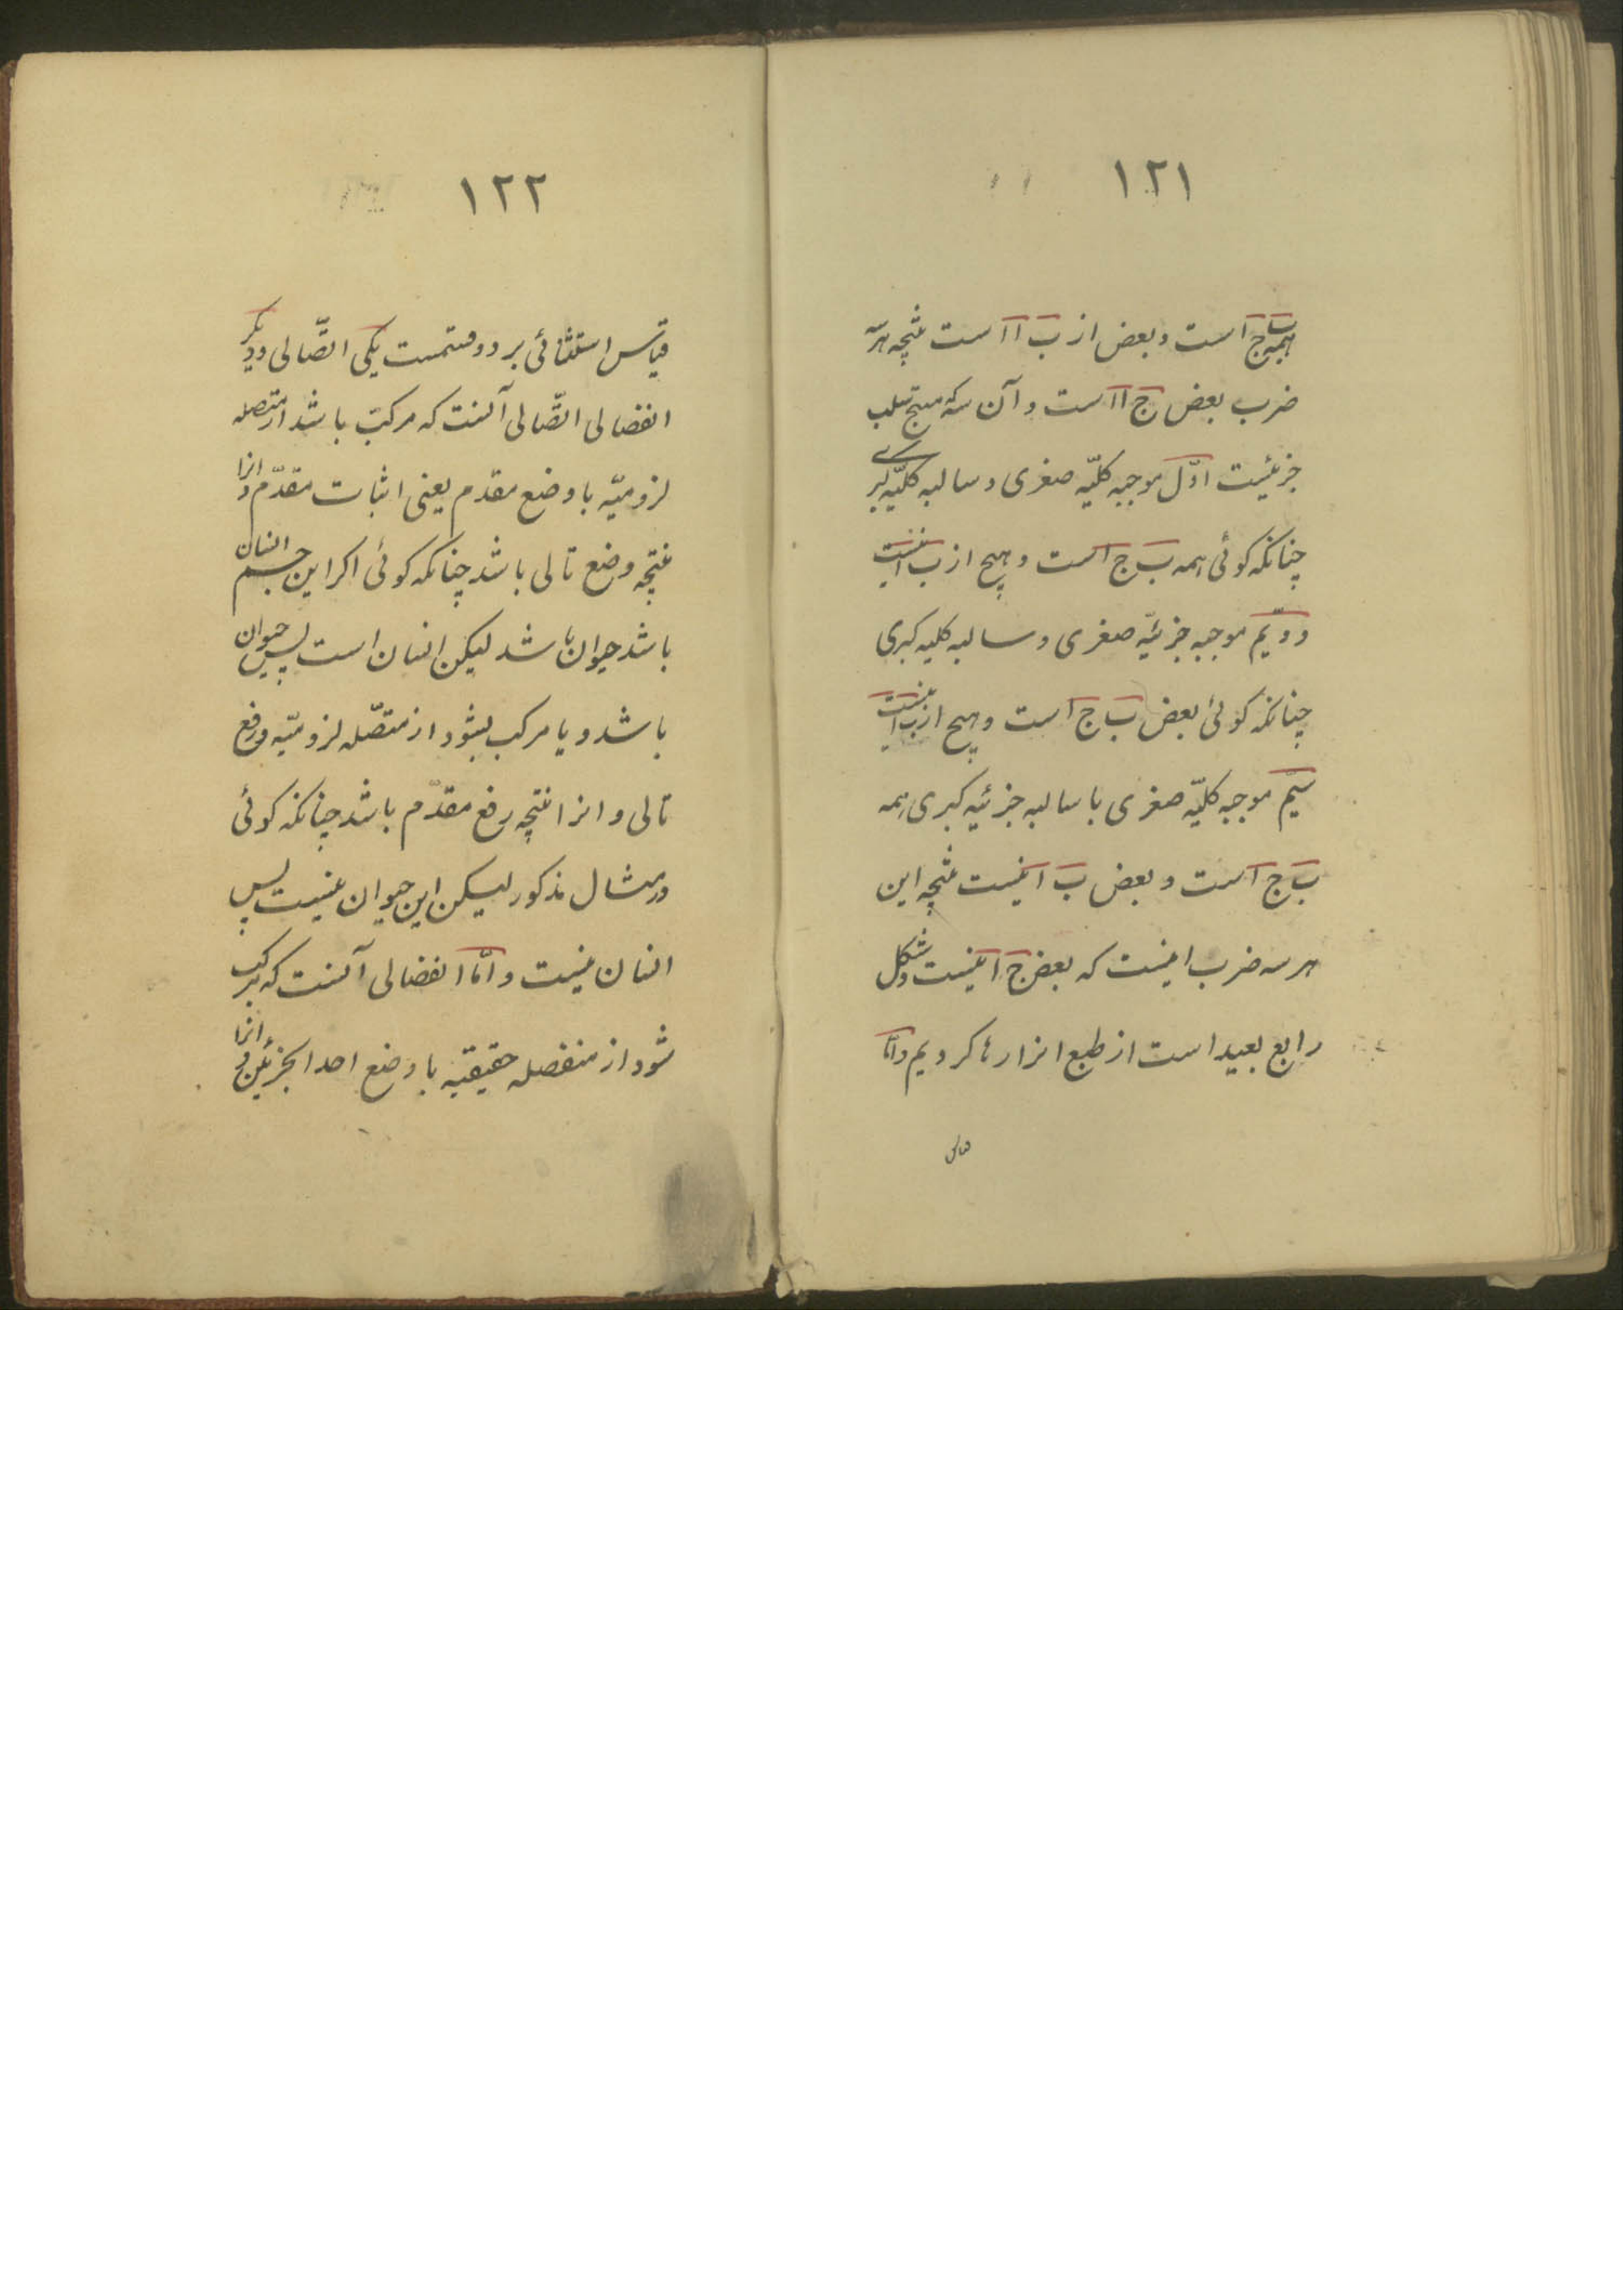 ١٢١
همه ب ج است و بعض از ب ا است نتیجه هر سه
ضرب بعض ج ا است و آن سه که منتج سلب
جزئیست اوّل موجبه کلیّه صغری و سالبه کلیّه کبری
چنانکه کوئی همه ب ج است و هیچ از ب ا نیست
دویّم موجبه جزئیّه صغری و سالبه کلیه کبری
چنانکه کوئی بعض ب ج است و هیچ از ب ا نیست
سیّم موجبه کلیّه صغری با سالبه جزئیه کبری همه
ب ج است و بعض ب ا نیست نتیجه این
هر سه ضرب اینست که بعض ج ا نیست و شکل
رابع بعید است از طبع انرا رها کردیم و امّا
قیاس
١٢٢
قیاس استثنائی بر دو قسمست یکی اتّصالی و دیکر
انفصالی اتّصالی آنست که مرکبّ باشد از متصله
لزومیّه با وضع مقدم یعنی اثبات مقدّم و انرا
نتیجه وضع تالی باشد چنانکه کوئی اکر این جسم انسان
باشد حیوان باشد لیکن انسان است پس حیوان
باشد و یا مرکب بشود از متصّله لزومیّه و رفع
تالی و انرا نتیجه رفع مقدّم باشد چنانکه کوئی
در مثال مذکور لیکن این حیوان نیست پس
انسان نیست و امّا انفصالی آنست که مرکب
شود از منفصله حقیقیه با وضع احد الجزئین و انرا